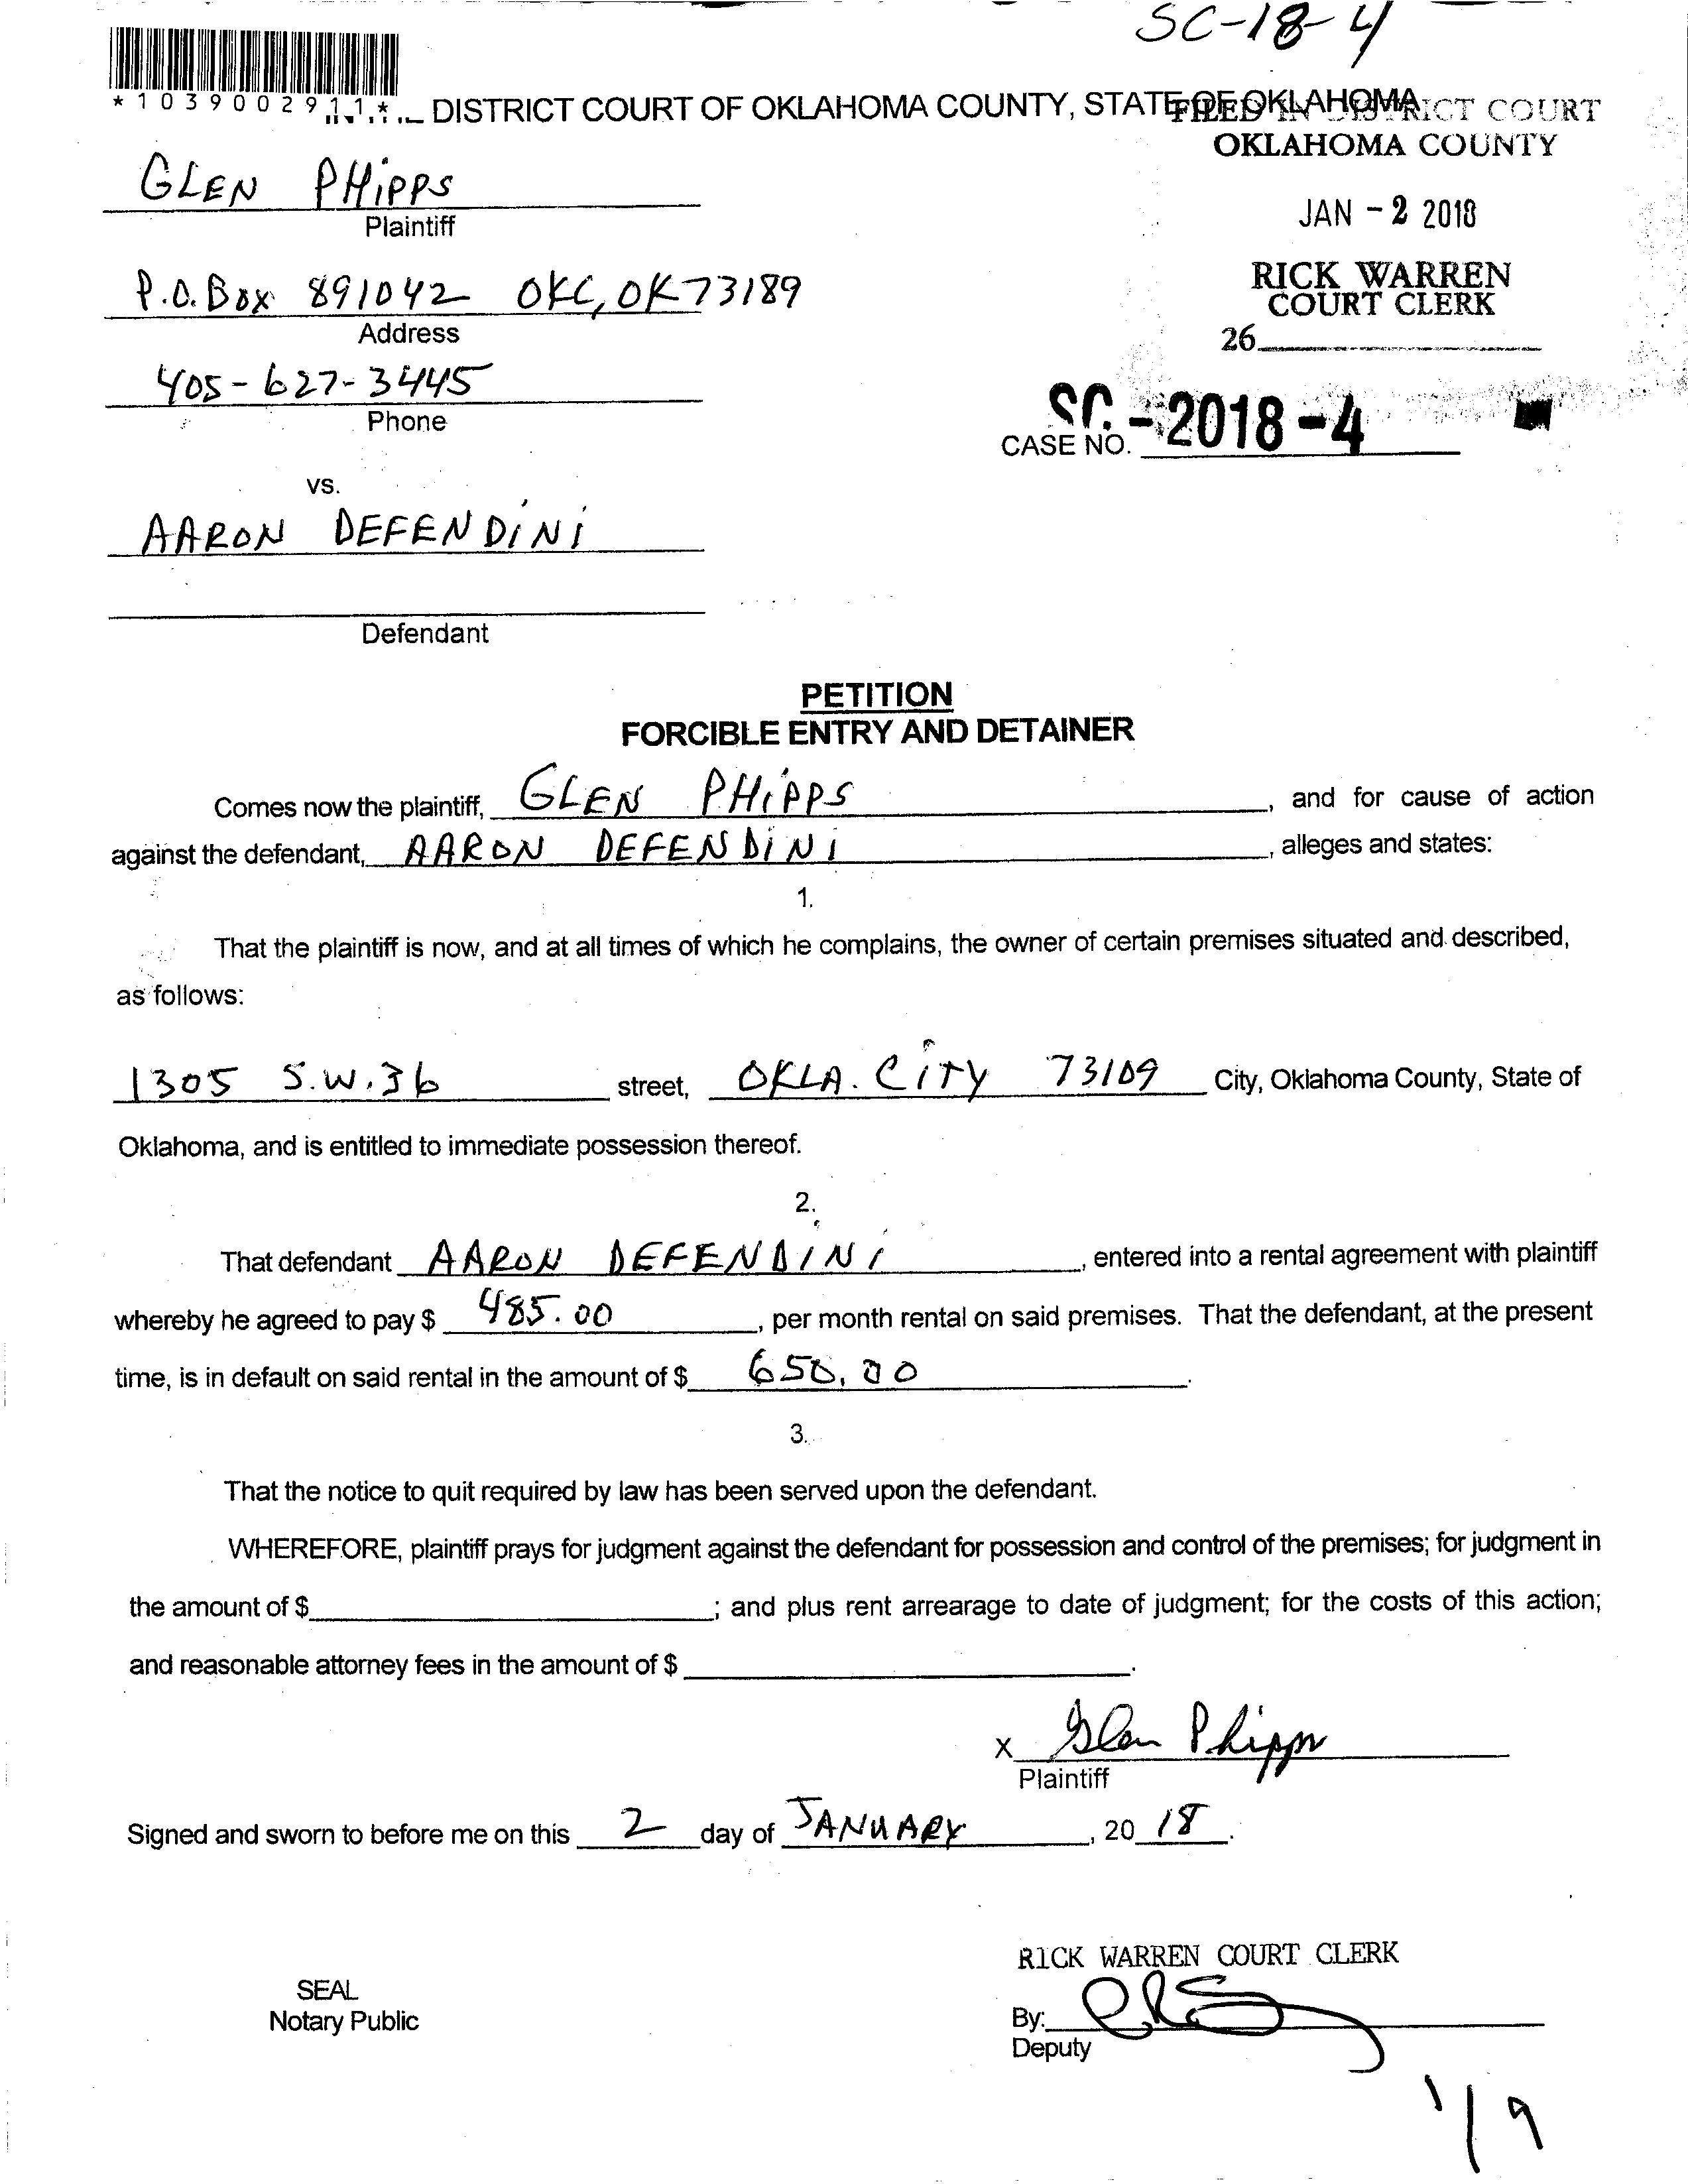 SC-18-4
*1039002911*
DISTRICT COURT OF OKLAHOMA COUNTY, STATE OF OKLAHOMA
FILED IN DISTRICT COURT
OKLAHOMA COUNTY
GLEN PHIPPS
Plaintiff
JAN - 2 2018
P.O. Box 891042 OKC, OK 73189
Address
RICK WARREN
COURT CLERK
26
405-627-3445
Phone
SC - 2018 - 4
CASE NO.
vs.
AARON DEFENDINI
Defendant
PETITION
FORCIBLE ENTRY AND DETAINER
Comes now the plaintiff, GLEN PHIPPS, and for cause of action
against the defendant, AARON DEFENDINI, alleges and states:
1.
That the plaintiff is now, and at all times of which he complains, the owner of certain premises situated and described,
as follows:
1305 S.W. 36 street, OKLA. CITY 73109 City, Oklahoma County, State of
Oklahoma, and is entitled to immediate possession thereof.
2.
That defendant AARON DEFENDINI, entered into a rental agreement with plaintiff
whereby he agreed to pay $ 485.00, per month rental on said premises. That the defendant, at the present
time, is in default on said rental in the amount of $ 650.00.
3.
That the notice to quit required by law has been served upon the defendant.
WHEREFORE, plaintiff prays for judgment against the defendant for possession and control of the premises; for judgment in
the amount of $ ; and plus rent arrearage to date of judgment; for the costs of this action;
and reasonable attorney fees in the amount of $ .
x Glen Phipps
Plaintiff
Signed and sworn to before me on this 2 day of JANUARY, 20 18.
RICK WARREN COURT CLERK
SEAL
Notary Public
By:
Deputy
1/9